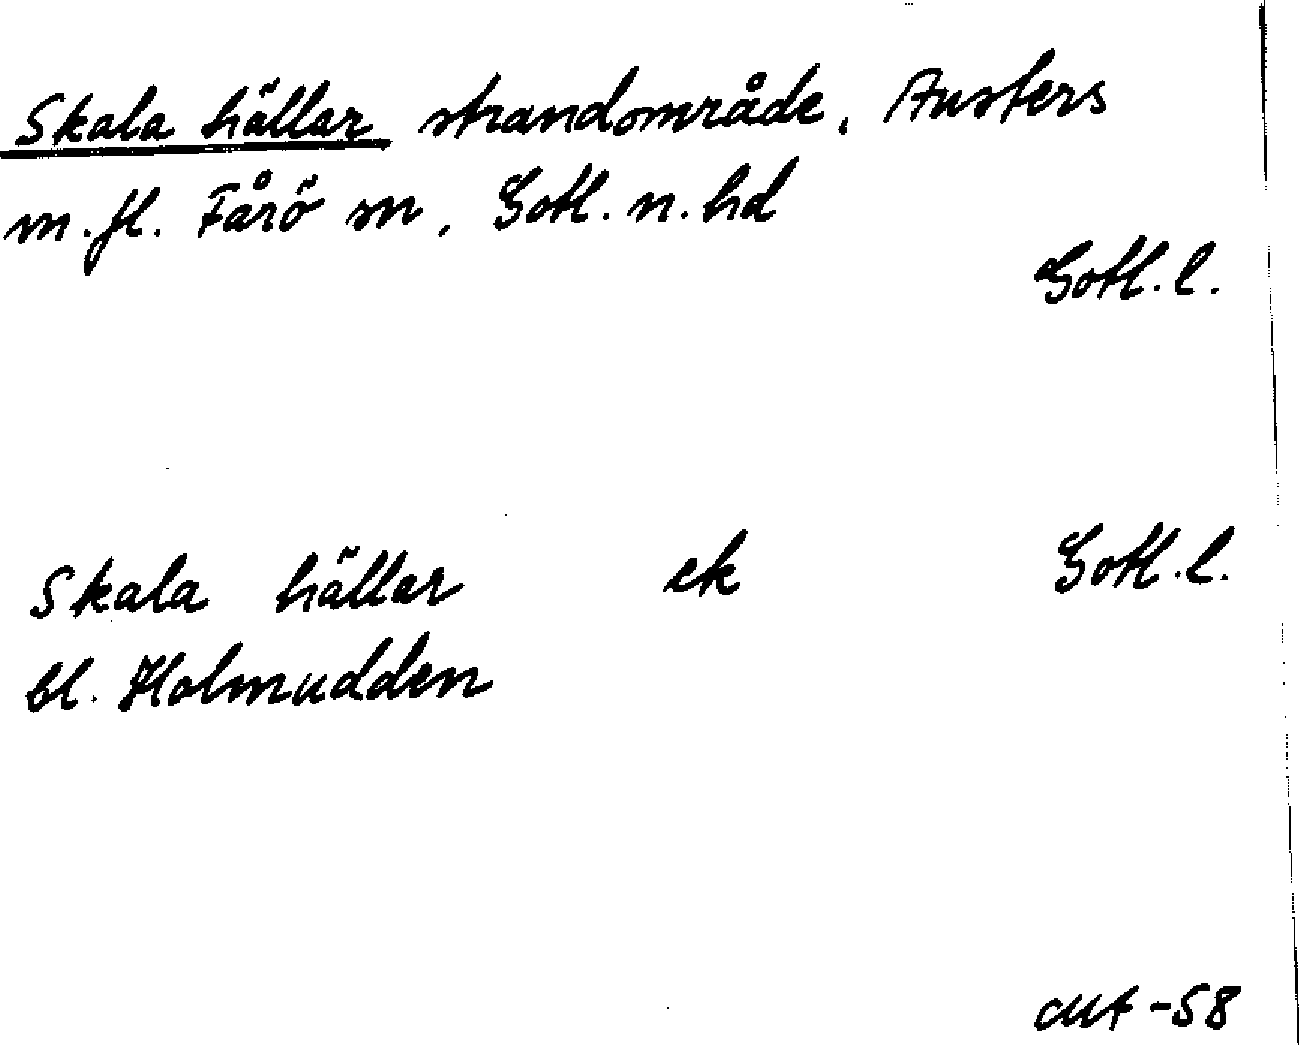 Skala hällar strandområde, Austers
m.fl. Fårö sn, Gotl. n. hd
Gotl. l.
Skala hällar ek Gotl. l.
bl. Holmudden
-58